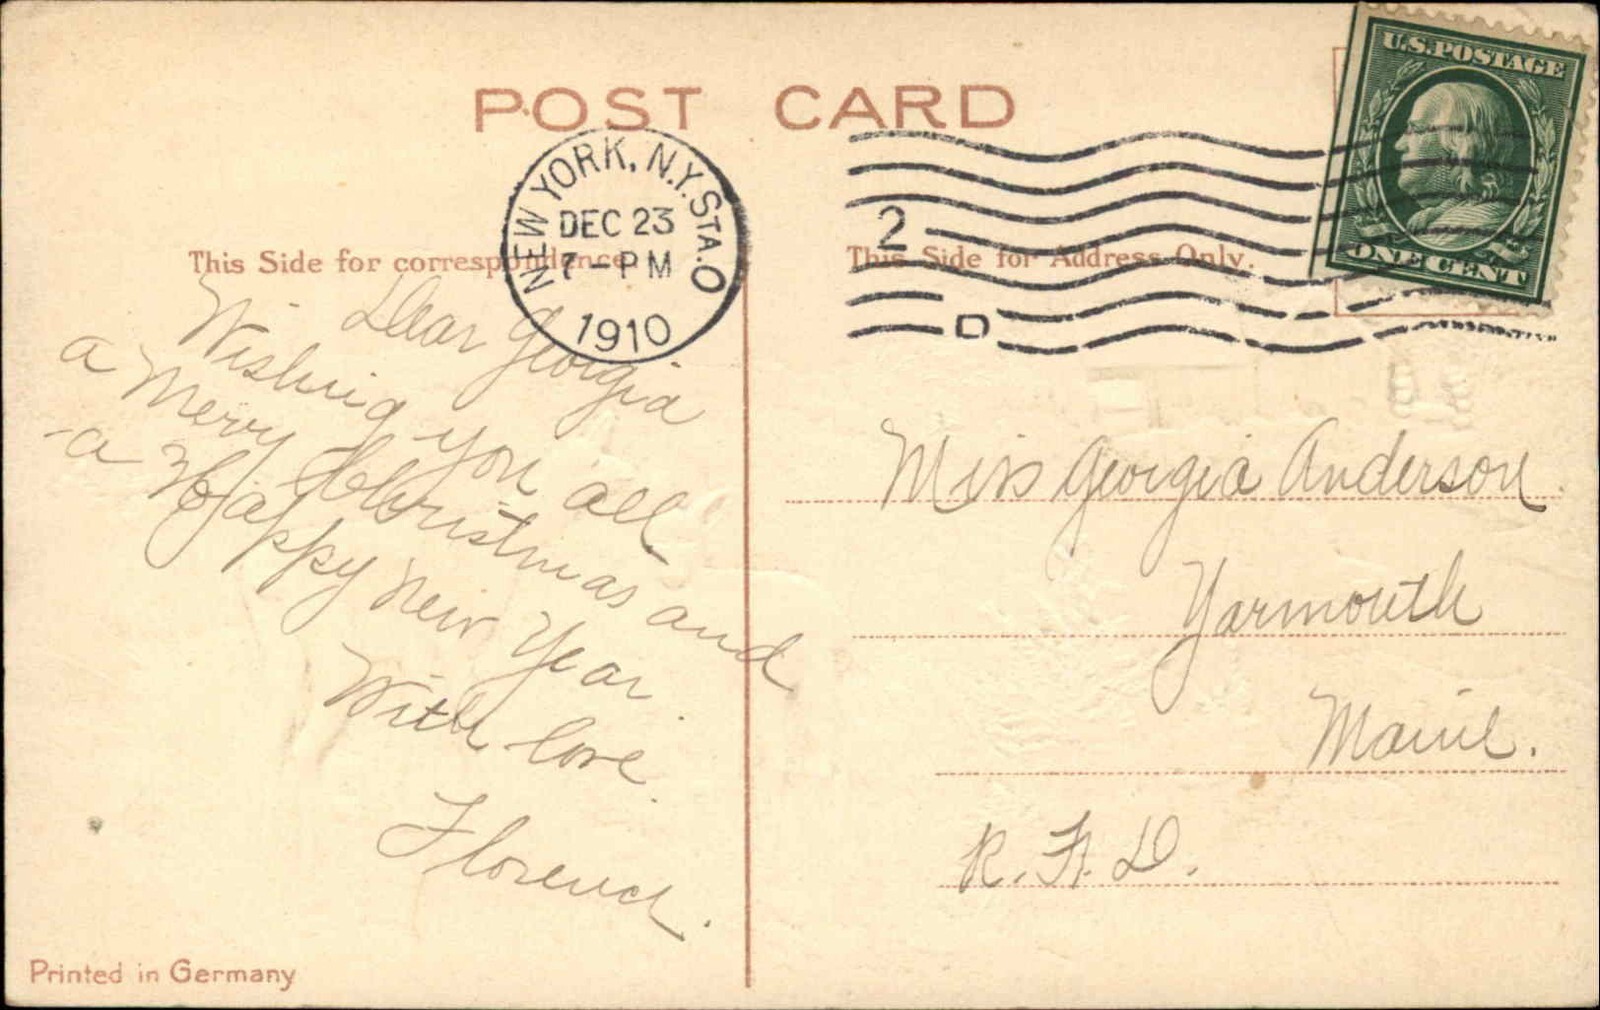 POST CARD
NEW YORK, N.Y. STA. O
DEC 23
7-PM
1910
2
D
U.S. POSTAGE
ONE CENT
This Side for correspondence
This Side for Address Only.
Dear Georgia
Wishing you all
a Merry Christmas and
a Happy New Year.
With love.
Florence.
Miss Georgia Anderson.
Yarmouth
Maine.
R. F. D.
Printed in Germany